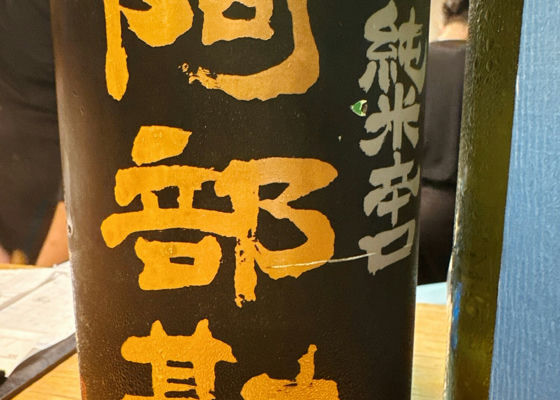 阿部勘
純米辛口